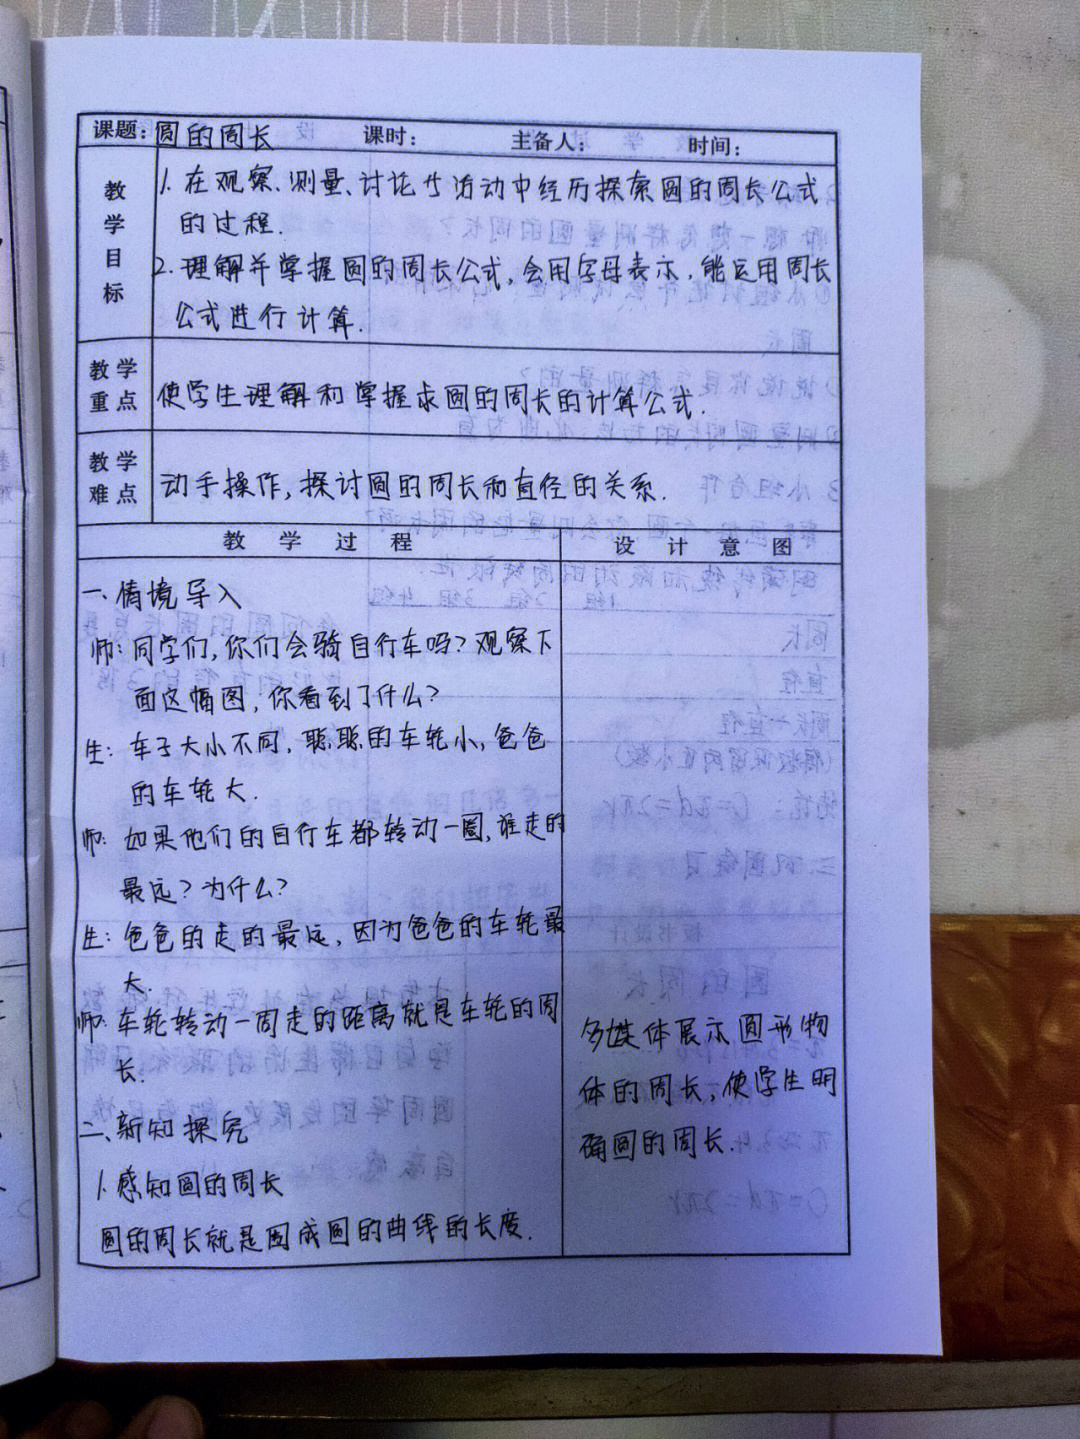 课题：圆的周长 课时： 主备人： 时间：
教学目标
1. 在观察、测量、讨论等活动中经历探索圆的周长公式
的过程.
2. 理解并掌握圆的周长公式，会用字母表示，能运用周长
公式进行计算.
教学重点
使学生理解和掌握求圆的周长的计算公式.
教学难点
动手操作，探讨圆的周长和直径的关系.
教 学 过 程
设 计 意 图
一、情境导入
师：同学们，你们会骑自行车吗？观察下
面这幅图，你看到了什么？
生：车子大小不同，聪聪的车轮小，爸爸
的车轮大.
师：如果他们的自行车都转动一圈，谁走的
最远？为什么？
生：爸爸的走的最远，因为爸爸的车轮最
大.
师：车轮转动一周走的距离就是车轮的周
长.
二、新知探究
1. 感知圆的周长
圆的周长就是围成圆的曲线的长度.
多媒体展示圆形物
体的周长，使学生明
确圆的周长.